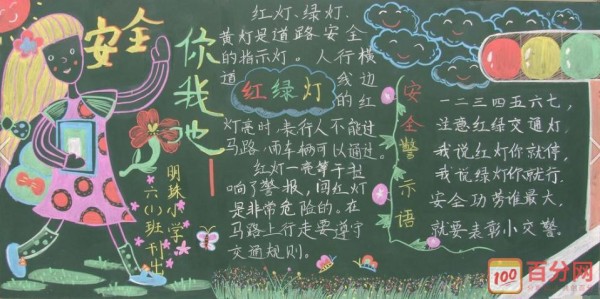 安全
你我他
明珠小学
六(1)班刊出
红灯、绿灯、
黄灯是道路安全
的指示灯。人行横
道线边
的红
红绿灯
灯亮时,表行人不能过
马路,而车辆可以通过。
红灯一亮等于
响了警报,闯红灯
是非常危险的。在
马路上行走要遵守
交通规则。
安全警示语
一二三四五六七,
注意红绿交通灯
我说红灯你就停,
我说绿灯你就行,
安全功劳谁最大,
就要表彰小交警。
100
百分网